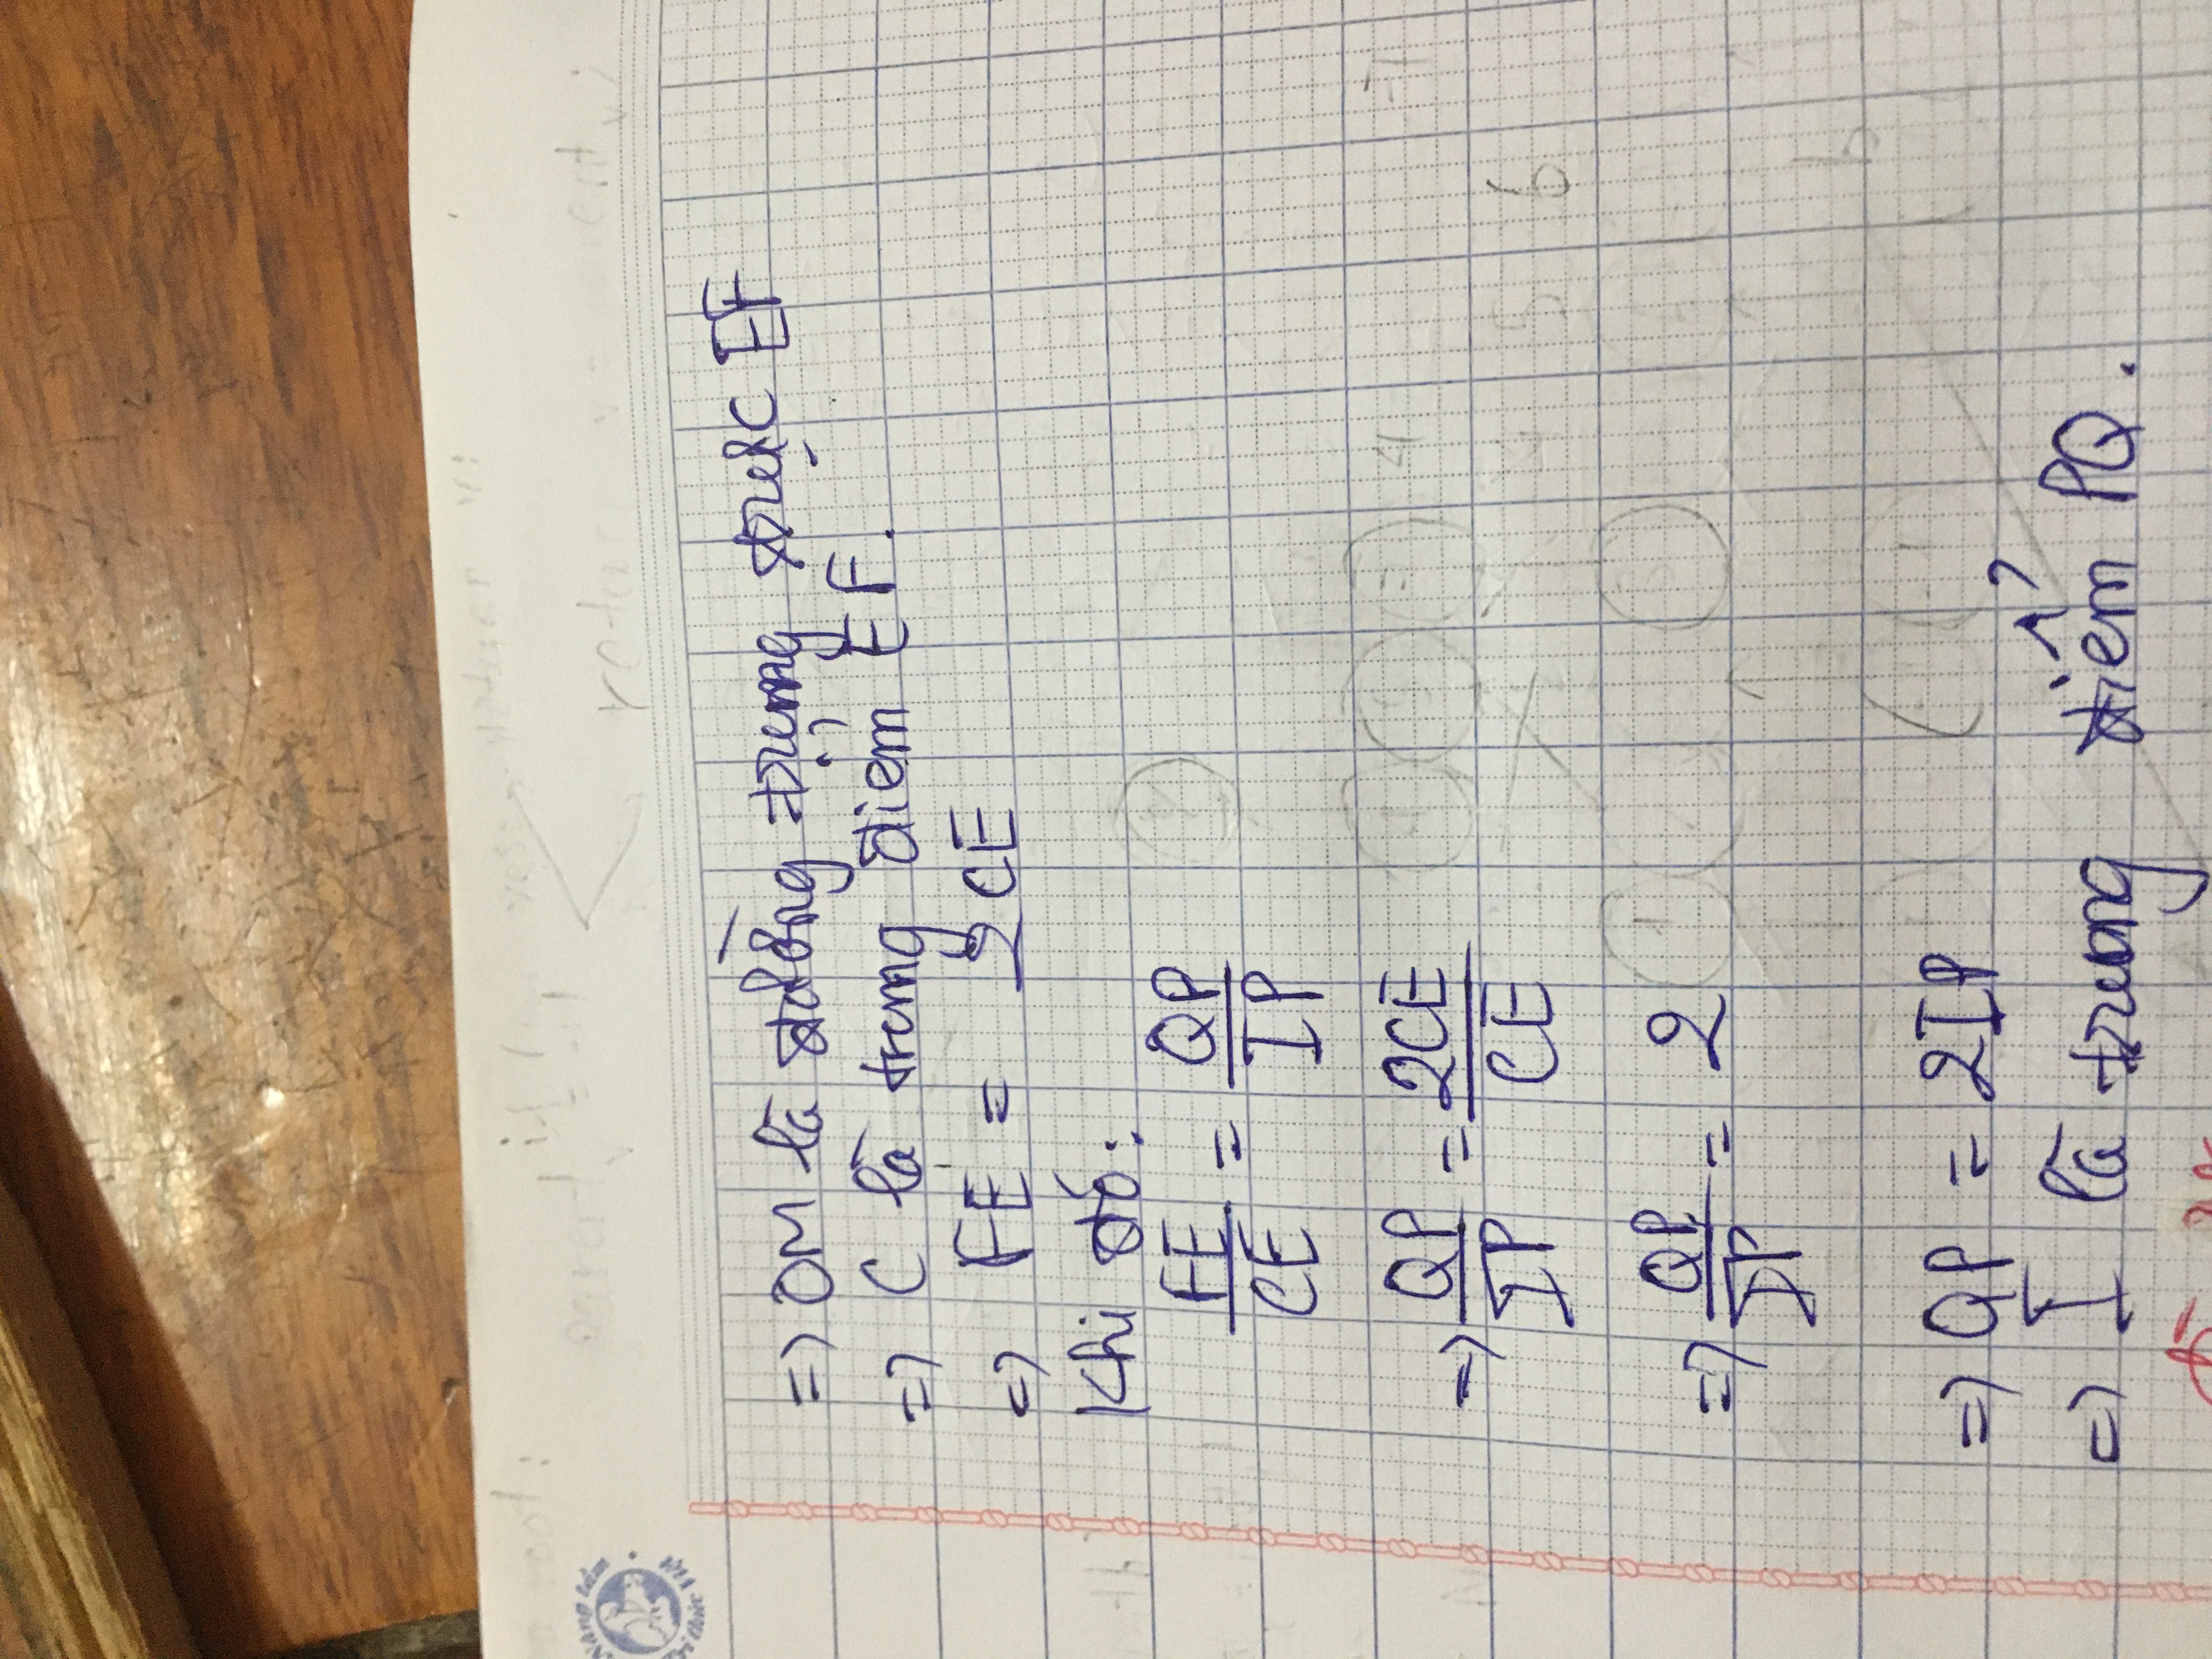 Nâng tầm
Tri thức Việt
=> OM là đường trung trực EF
=> C là trung điểm EF.
=> FE = 2CE
Khi đó:
FE/CE = QP/IP
=> QP/IP = 2CE/CE
=> QP/IP = 2
=> QP = 2IP
=> I là trung điểm PQ.
4
5 6